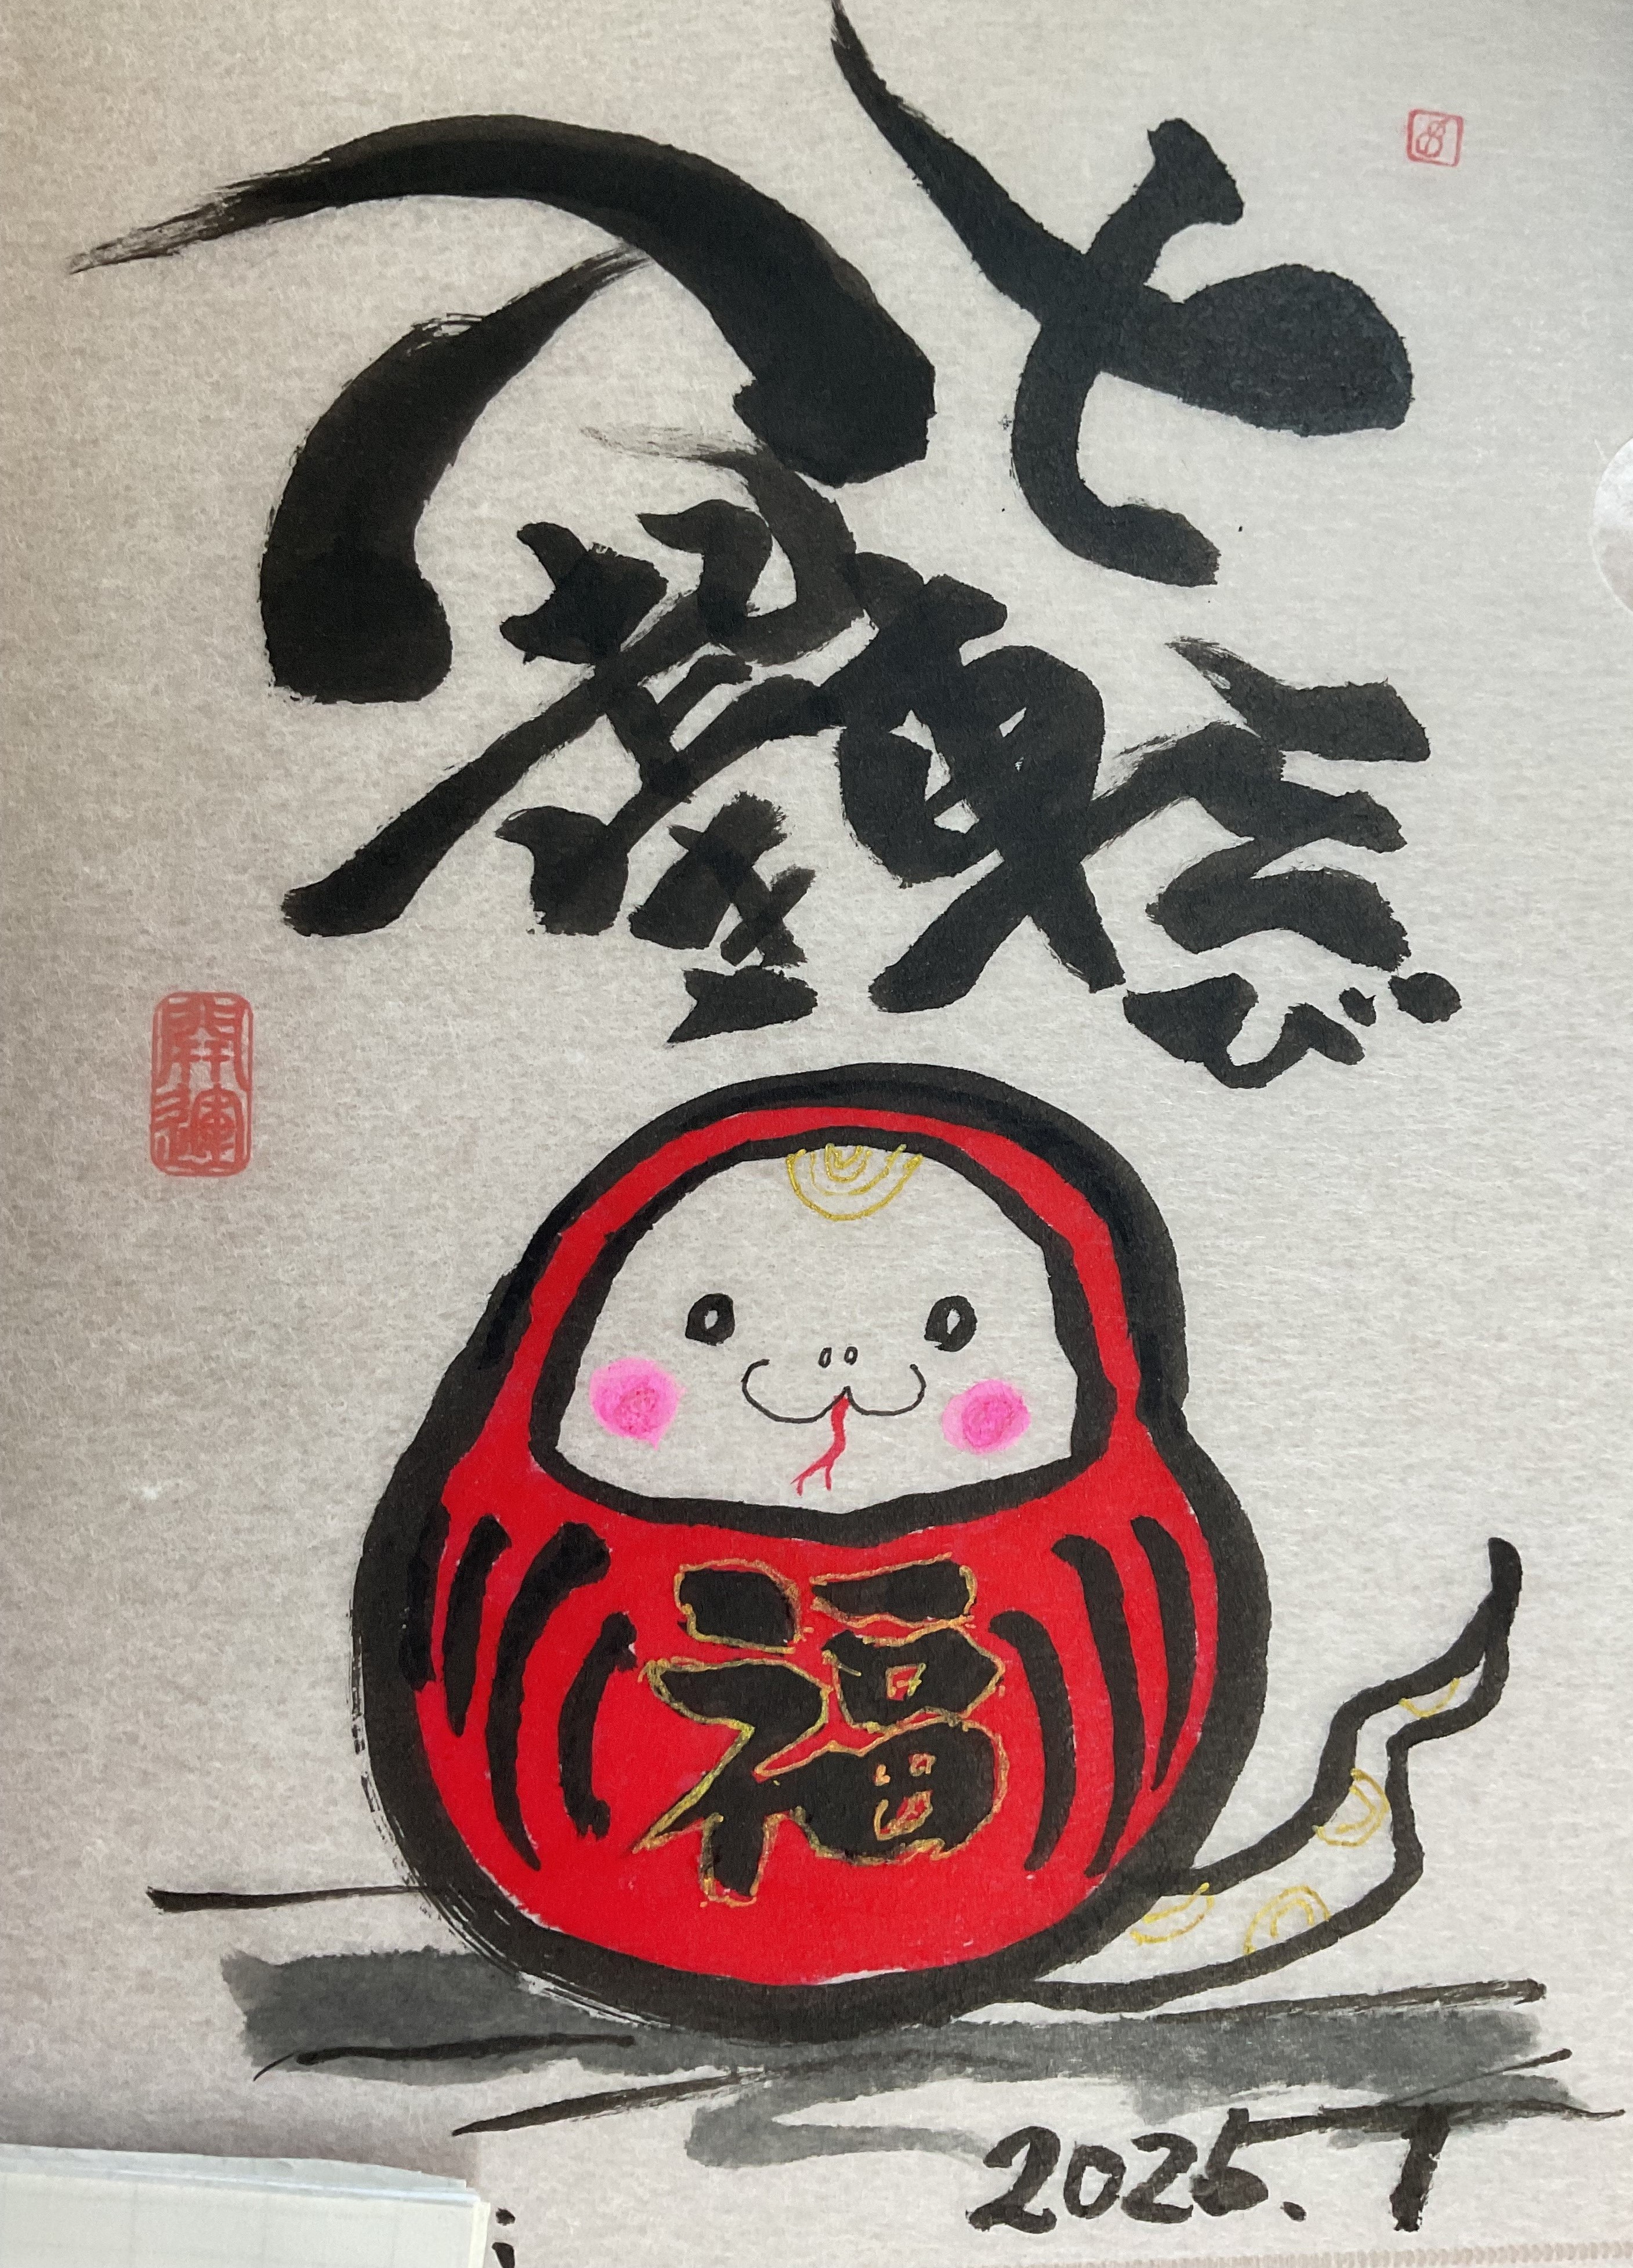 七転び
八起き
開運
福
2025.1